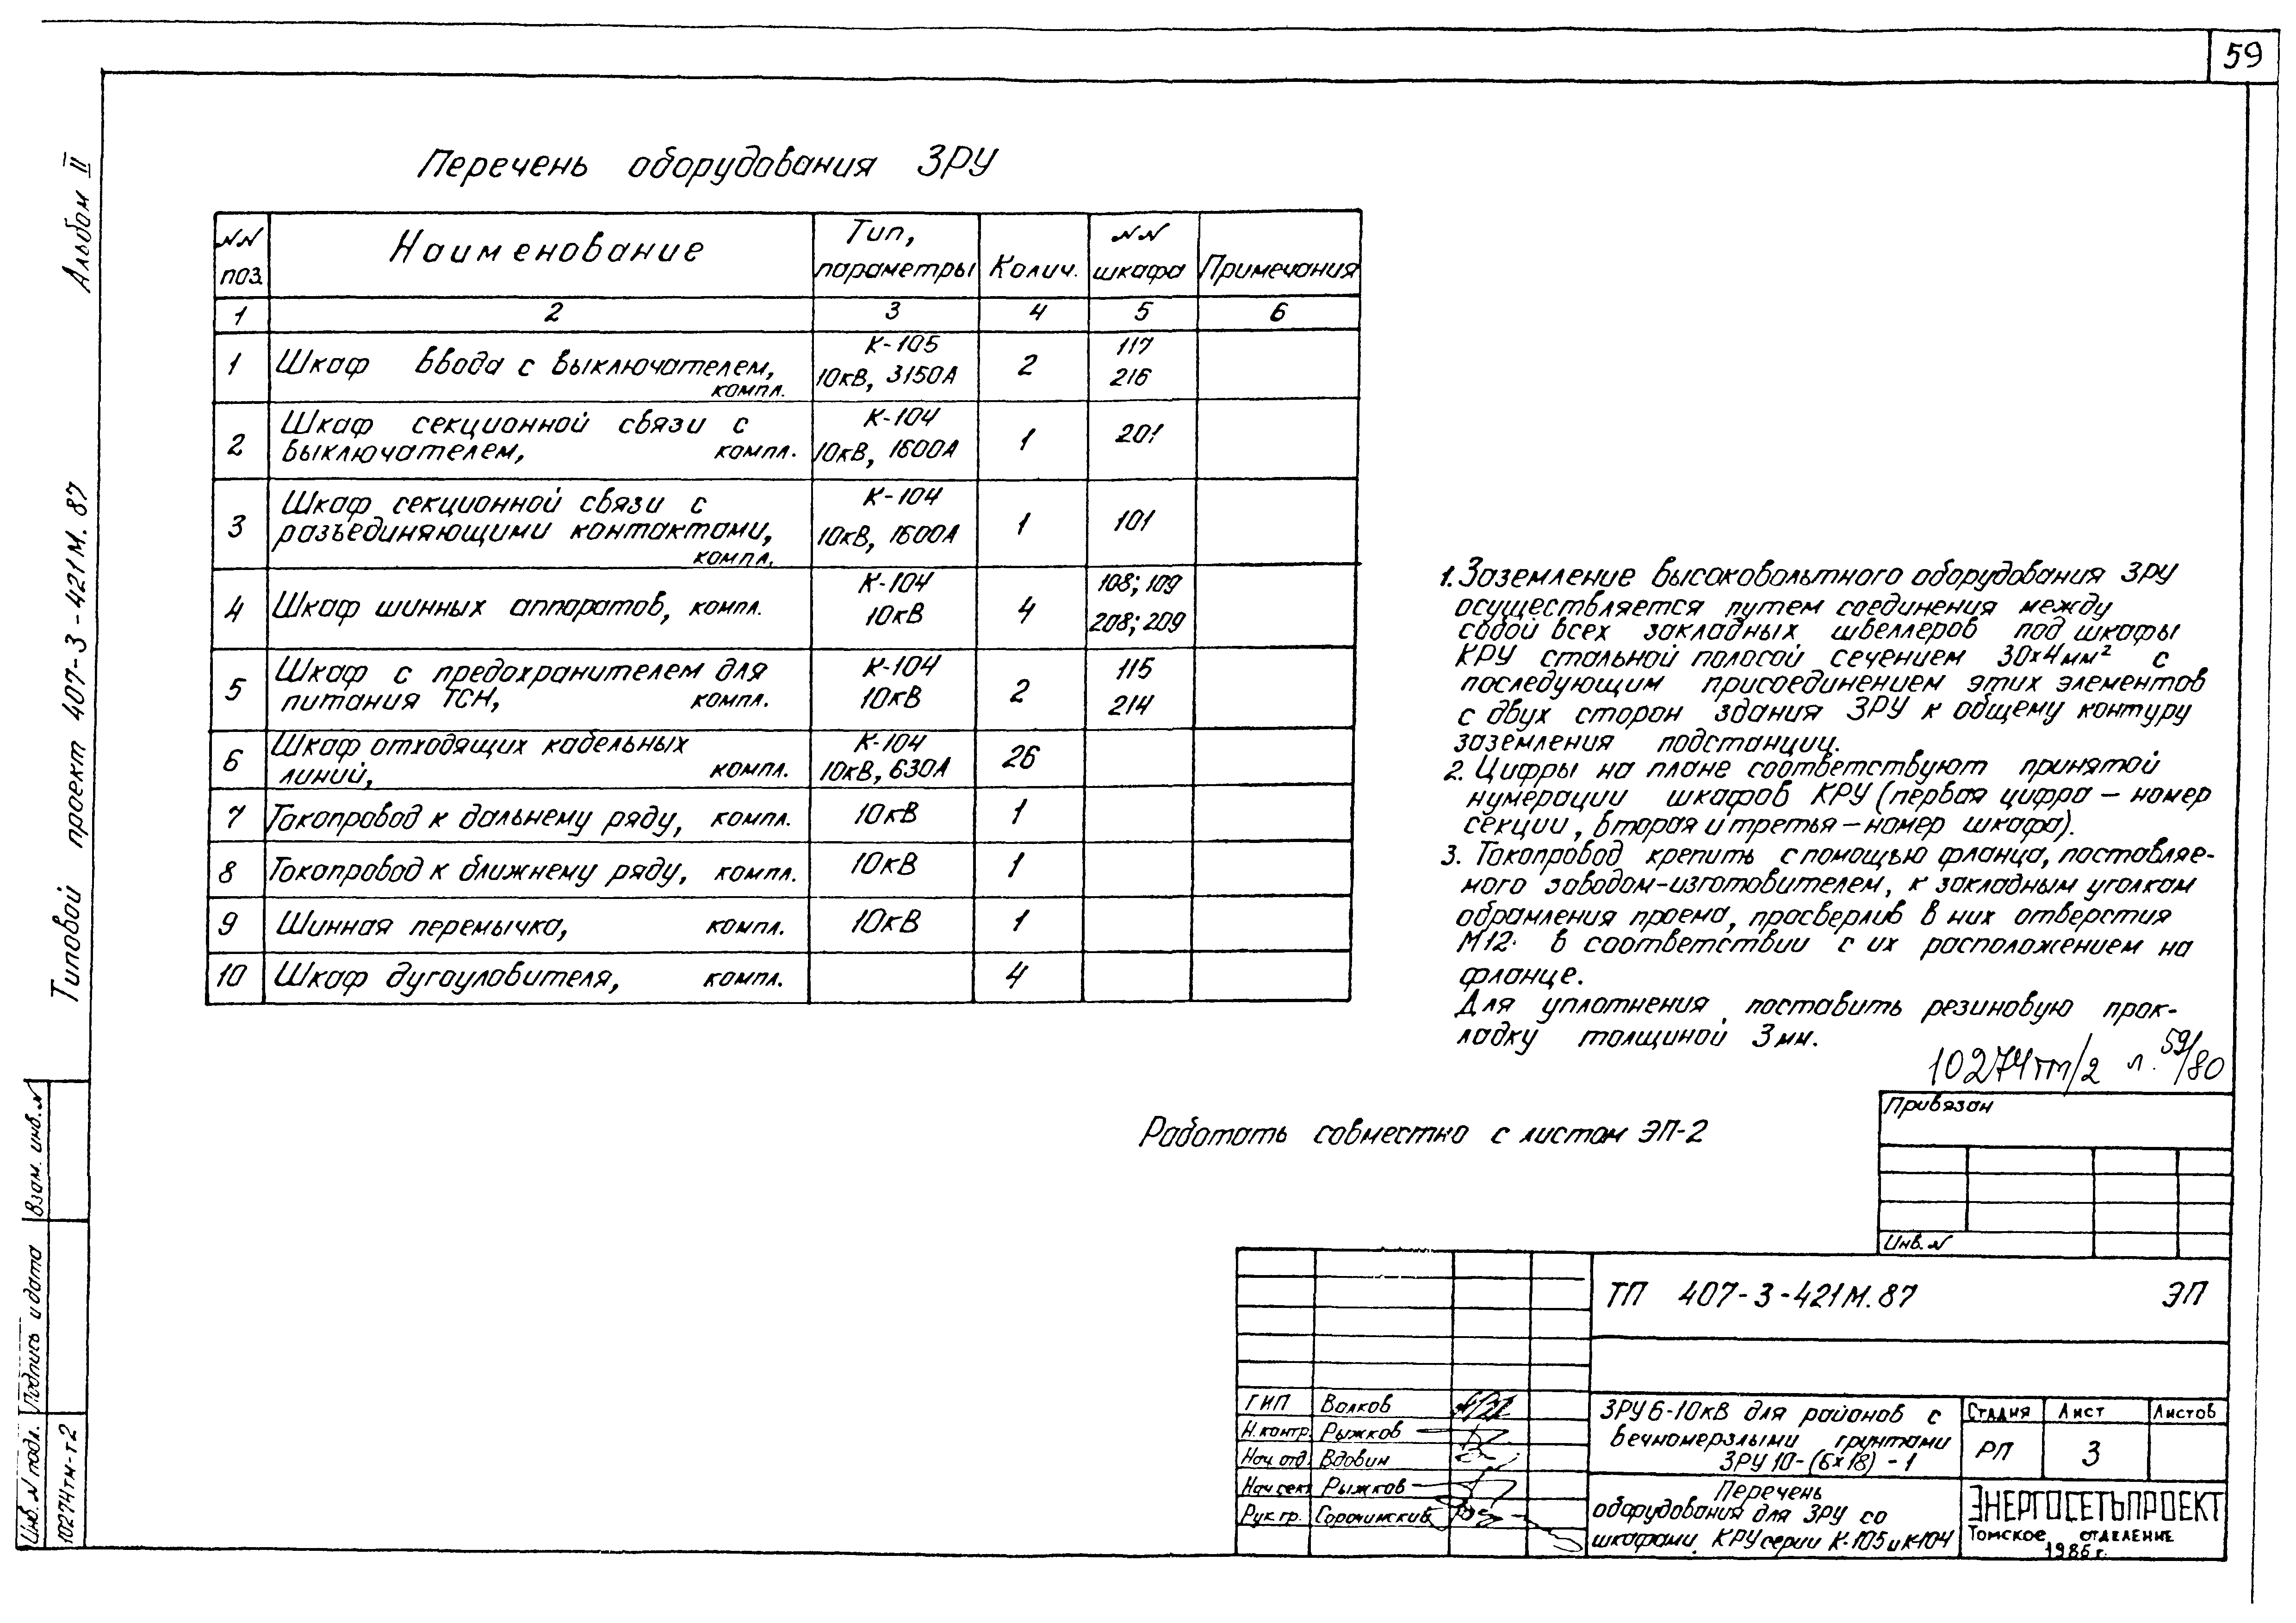 59
Альбом II
Типовой проект 407-3-421М.87
Перечень оборудования ЗРУ
NN поз. Наименование Тип, параметры Колич. NN шкафа Примечания
1 2 3 4 5 6
1 Шкаф ввода с выключателем, компл. К-105 10кВ, 3150А 2 117 216
2 Шкаф секционной связи с выключателем, компл. К-104 10кВ, 1600А 1 201
3 Шкаф секционной связи с разъединяющими контактами, компл. К-104 10кВ, 1600А 1 101
4 Шкаф шинных аппаратов, компл. К-104 10кВ 4 108; 109 208; 209
5 Шкаф с предохранителем для питания ТСН, компл. К-104 10кВ 2 115 214
6 Шкаф отходящих кабельных линий, компл. К-104 10кВ, 630А 26
7 Токопровод к дальнему ряду, компл. 10кВ 1
8 Токопровод к ближнему ряду, компл. 10кВ 1
9 Шинная перемычка, компл. 10кВ 1
10 Шкаф дугоуловителя, компл. 4
1. Заземление высоковольтного оборудования ЗРУ
осуществляется путем соединения между
собой всех закладных швеллеров под шкафы
КРУ стальной полосой сечением 30×4мм² с
последующим присоединением этих элементов
с двух сторон здания ЗРУ к общему контуру
заземления подстанции.
2. Цифры на плане соответствуют принятой
нумерации шкафов КРУ (первая цифра – номер
секции, вторая и третья – номер шкафа).
3. Токопровод крепить с помощью фланца, поставляе-
мого заводом-изготовителем, к закладным уголкам
обрамления проема, просверлив в них отверстия
М12 в соответствии с их расположением на
фланце.
Для уплотнения поставить резиновую прок-
ладку толщиной 3мм.
10274тм/2 л. 59/80
Работать совместно с листом ЭП-2
Привязан
Инв. N
ТП 407-3-421М.87 ЭП
ГИП Волков
Н.контр. Рыжков
Нач. отд. Вдовин
Нач сект Рыжков
Рук. гр. Сорочинский
ЗРУ 6-10кВ для районов с
вечномерзлыми грунтами
ЗРУ 10-(6×18)-1
Стадия Лист Листов
РП 3
Перечень
оборудования для ЗРУ со
шкафами КРУ серии К-105 и К-104
ЭНЕРГОСЕТЬПРОЕКТ
Томское отделение
1986 г.
Взам. инв. N
Подпись и дата
Инв. N подл.
10274тм-т2